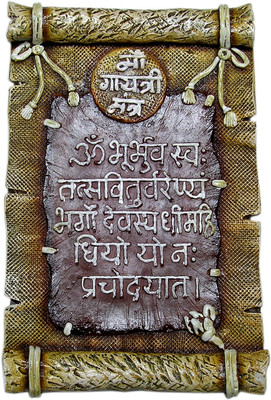 माँ
गायत्री
मंत्र
ॐ भूर्भुव स्वः
तत्सवितुर्वरेण्यं
भर्गो देवस्य धीमहि
धियो यो नः
प्रचोदयात।